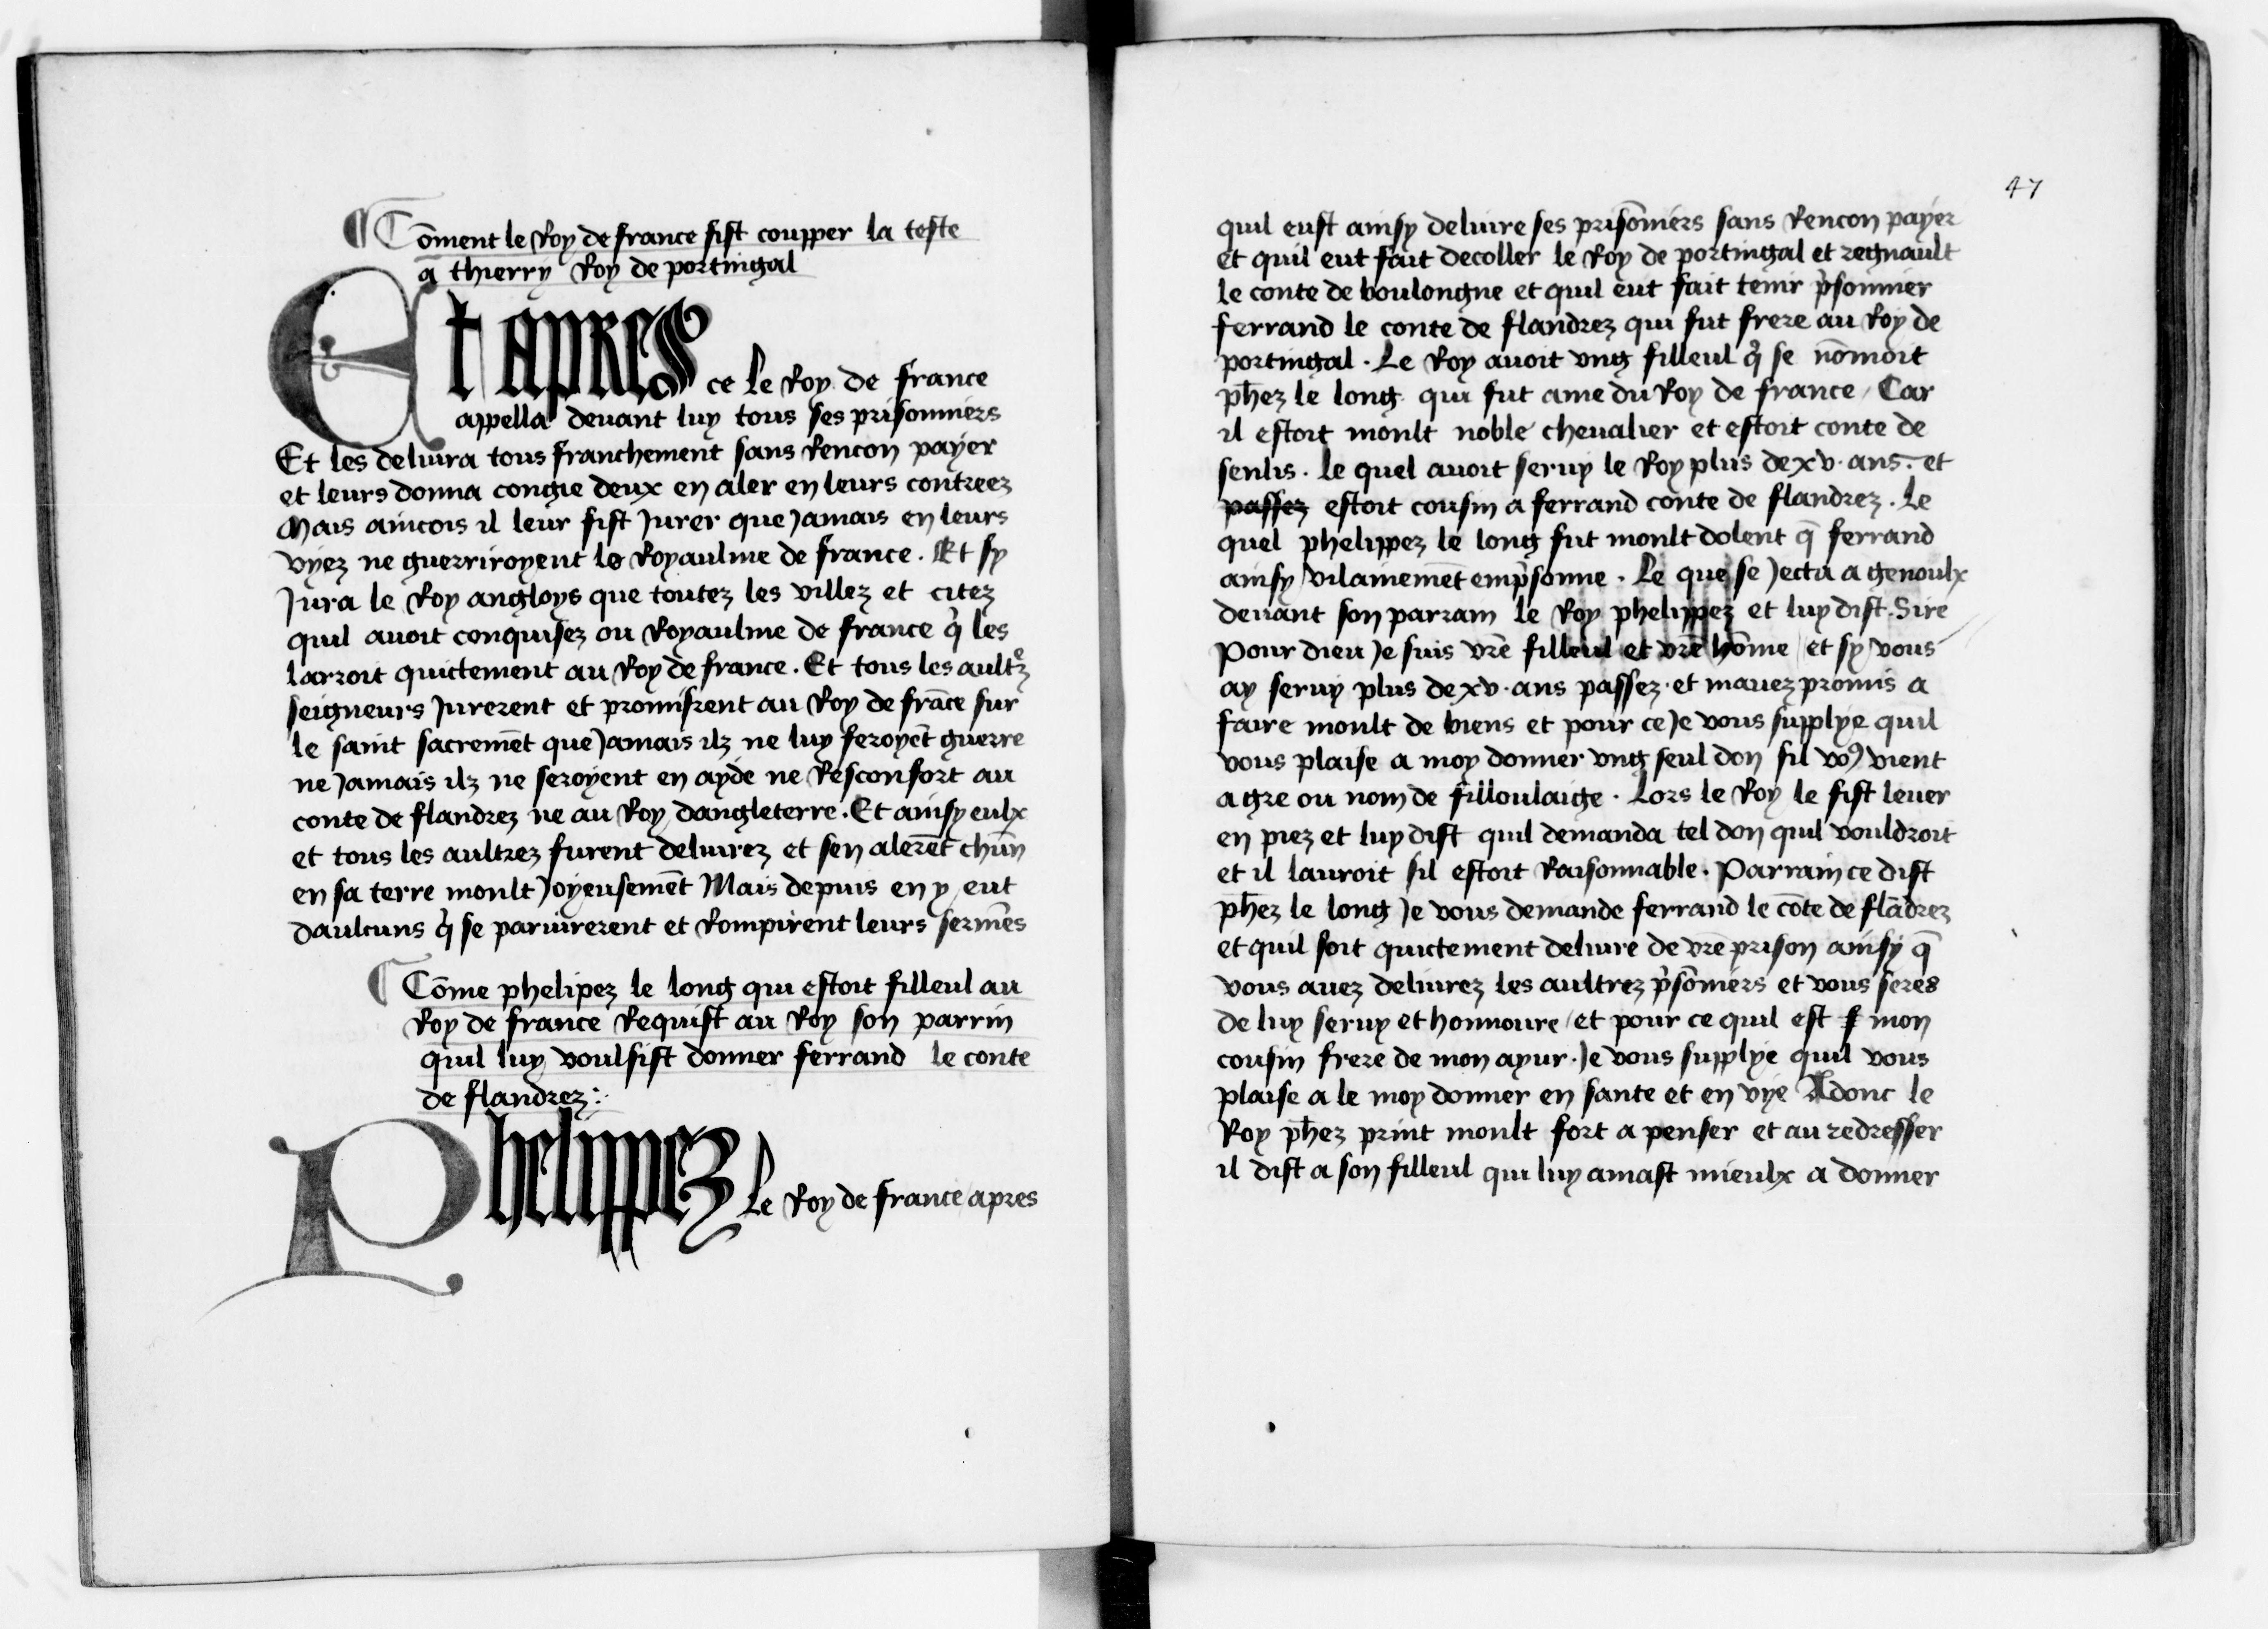 ¶ Cōment le Roy de france fist coupper la teste
a thierry Roy de portingal
Et apres ce le Roy de france
appella deuant luy tous ses prisonniers
Et les deliura tous franchement sans Rencon payer
et leurs donna congie deux en aler en leurs contreez
Mais aincois il leur fist Jurer que Jamais en leurs
vyez ne guerriroyent le Royaulme de france . Et sy
Jura le Roy angloys que toutez les villez et citez
quil auoit conquisez ou Royaulme de france qͥ les
larroit quictement au Roy de france . Et tous les aultrͤz
seigneurs Jurerent et promisrent au Roy de frāce sur
le saint sacremēt que Jamais ilz ne luy feroyēt guerre
ne Jamais ilz ne seroyent en ayde ne Resconfort au
conte de flandrez ne au Roy dangleterre . Et ainsy eulx
et tous les aultrez furent deliurez et sen alerēt chūn
en sa terre moult Joyeusemēt Mais depuis en y eut
daulcuns qͥ se pariurerent et Rompirent leurs sermēs
¶ Cōme phelipez le long qui estoit filleul au
Roy de france Requist au Roy son parrin
quil luy voulsist donner ferrand le conte
de flandrez :·
Phelippez le Roy de france apres
47
quil eust ainsy deliure ses prisōniers sans Rencon payer
et quil eut fait decoller le Roy de portingal et regnault
le conte de boulongne et quil eut fait tenir pͥsonnier
ferrand le conte de flandrez qui fut frere au Roy de
portingal . Le Roy auoit vng filleul qͥ se nōmoit
ph̄ez le long qui fut ame du Roy de france / Car
il estoit moult noble cheualier et estoit conte de
senlis . le quel auoit seruy le Roy plus de xv · ans . et
passez estoit cousin a ferrand conte de flandrez . Le
quel phelippez le long fut moult dolent q̄ ferrand
ainsy vilainemēt empͥsonne . Le quel se Jecta a genoulx
deuant son parrain le Roy phelippez et luy dist . Sire
pour dieu Je suis vrē filleul et vrē hōme / et sy vous
ay seruy plus de xv · ans passez · et mauez promis a
faire moult de biens et pour ce Je vous supplye quil
vous plaise a moy donner vng seul don sil voꝰ vient
a gre ou nom de filloulaige . Lors le Roy le fist leuer
en piez et luy dist quil demanda tel don quil vouldroit
et il lauroit sil estoit Raisonnable . Parrain ce dist
ph̄ez le long Je vous demande ferrand le cōte de flādrez
et quil soit quictement deliure de vrē prison ainsy q̄
vous auez deliurez les aultrez pͥsōniers et vous seres
de luy seruy et honnoure / et pour ce quil est f mon
cousin frere de mon ayur . Je vous supplye quil vous
plaise a le moy donner en sante et en vye Adonc le
Roy ph̄ez print moult fort a penser et au redresser
il dist a son filleul qui luy amast mieulx a donner